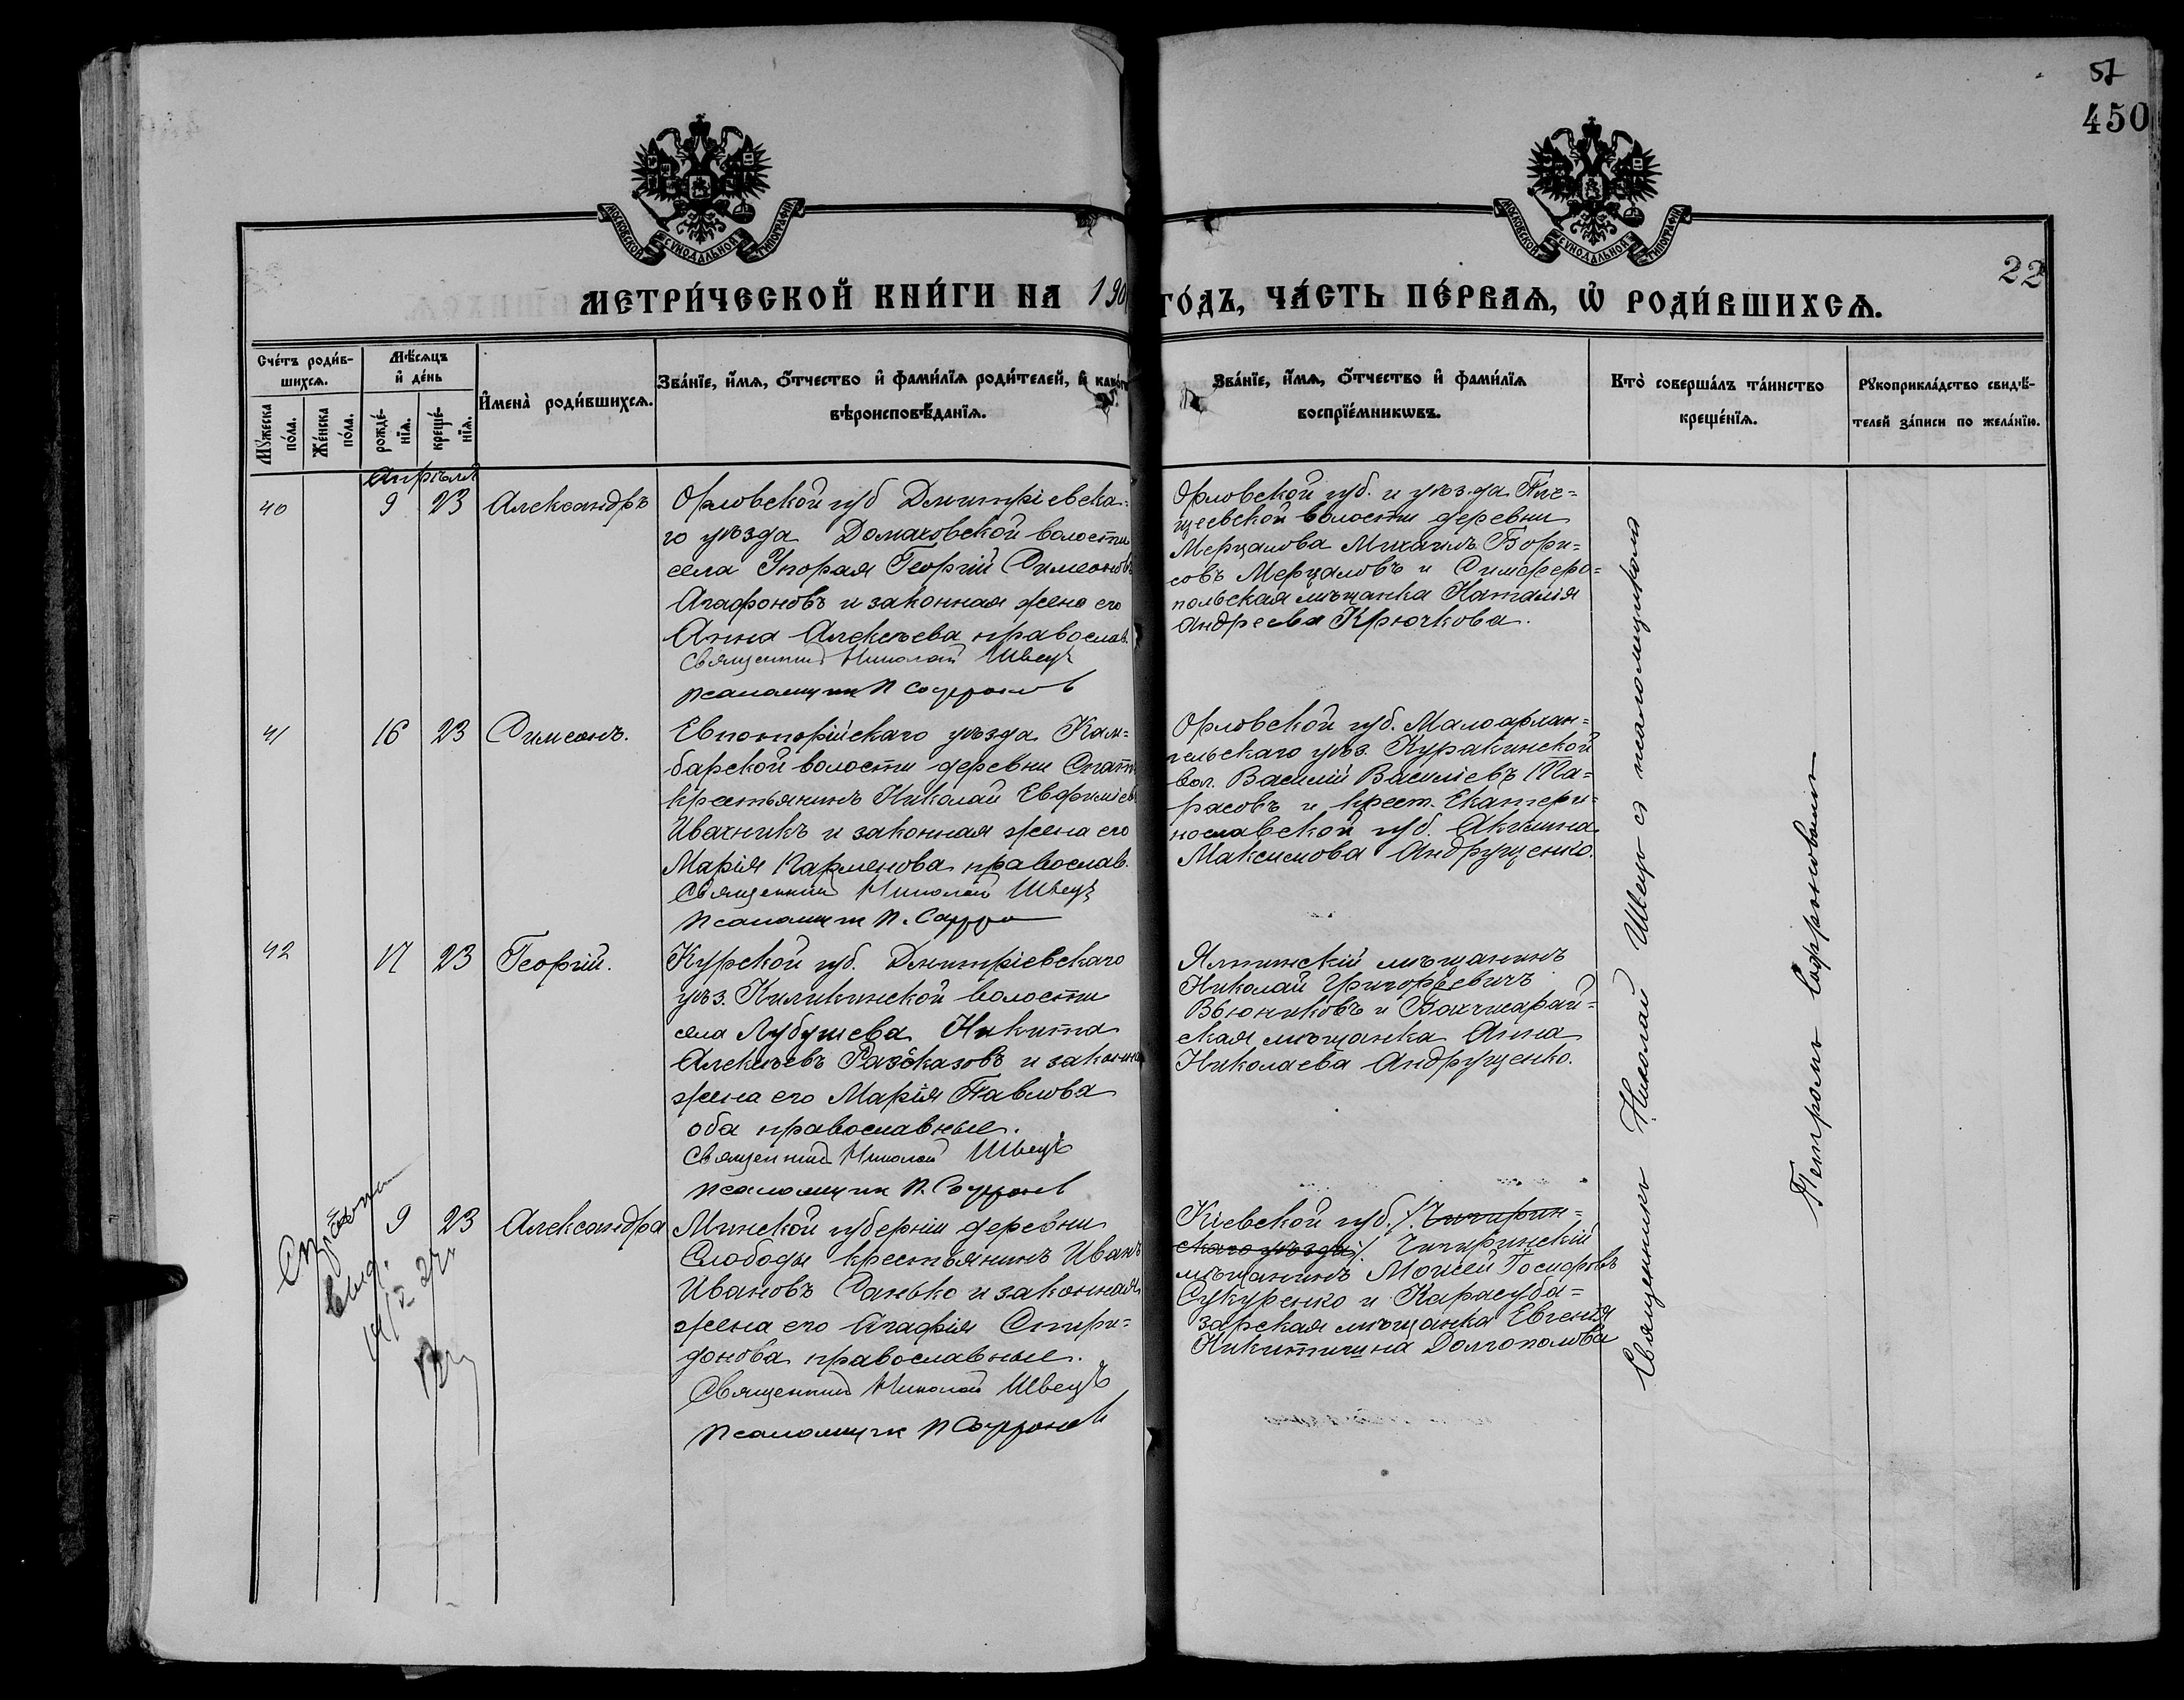 57
450
22
МОСКОВСКОЙ СѴНОДАЛЬНОЙ ТИПОГРАФІИ
МОСКОВСКОЙ СѴНОДАЛЬНОЙ ТИПОГРАФІИ
МЕТРИ́ЧЕСКОЙ КНИ́ГИ НА 190
ГО́ДЪ, ЧА́СТЬ ПЕ́РВАѦ, Ѽ РОДИ́ВШИХСѦ.
Сче́тъ роди́в-
шихсѧ.
Мѣ́сѧцъ
и҆ де́нь
Мꙋ́жеска
по́ла.
Же́нска
по́ла.
рожде́-
нїѧ.
креще́-
нїѧ.
И҆мена̀ роди́вшихсѧ.
Зва́нїе, и҆́мѧ, ѻ҆́тчество и҆ фами́лїѧ роди́телей, и҆
вѣроисповѣ́данїѧ.
Зва́нїе, и҆́мѧ, ѻ҆́тчество и҆ фами́лїѧ
воспрїе́мникѡвъ.
Кто̀ соверша́лъ та́инство
креще́нїѧ.
Рꙋкоприкла́дство свидѣ́-
телей за́писи по жела́нїю.
Апрѣля
40 9 23 Александръ
Орловской губ Дмитріевска-
го уѣзда Домаховской волости
села Упорая Георгій Симеоновъ
Агафоновъ и законная жена его
Анна Алексѣева православ.
Священник Николай Швецъ
псаломщик П Софронов
Орловской губ. и уѣзда Пле-
щеевской волости деревни
Мерцалова Михаилъ Бори-
совъ Мерцаловъ и Симферо-
польская мѣщанка Наталія
Андреева Крючкова.
41 16 23 Симеонъ.
Евпаторійскаго уѣзда Кам-
барской волости деревни Спат
крестьянинъ Николай Евфиміев
Ивахникъ и законная жена его
Марія Парменова православ.
Священник Николай Швецъ
псаломщик П. Софро
Орловской губ. Малоархан-
гельскаго уѣз. Куракинской
вол. Василій Василіевъ Та-
расовъ и крест. Екатери-
нославской губ. Акилина
Максимова Андрущенко.
42 17 23 Георгій.
Курской губ. Дмитріевскаго
уѣз. Киликинской волости
села Лубушева Никита
Алексѣевъ Разсказовъ и законна
жена его Марія Павлова
оба православные.
Священник Николай Швецъ
псаломщик П. Софронов
Ялтинскій мѣщанинъ
Николай Григорьевичъ
Вьюниковъ и Бахчисарай-
ская мѣщанка Анна
Николаева Андрущенко.
9 23 Александра
Минской губерніи деревни
Слободы крестьянинъ Иванъ
Ивановъ Санько и законная
жена его Агафія Спири-
донова православные.
Священник Николай Швецъ
псаломщик П Софронов
Кіевской губ. /Чигирин-
скаго уѣзда/ Чигиринскій
мѣщанинъ Моисей Іосифовъ
Сукуренко и Карасуба-
зарская мѣщанка Евгенія
Никитишна Долгополова
Священникъ Николай Швецъ съ псаломщикомъ
Петромъ Софроновымъ